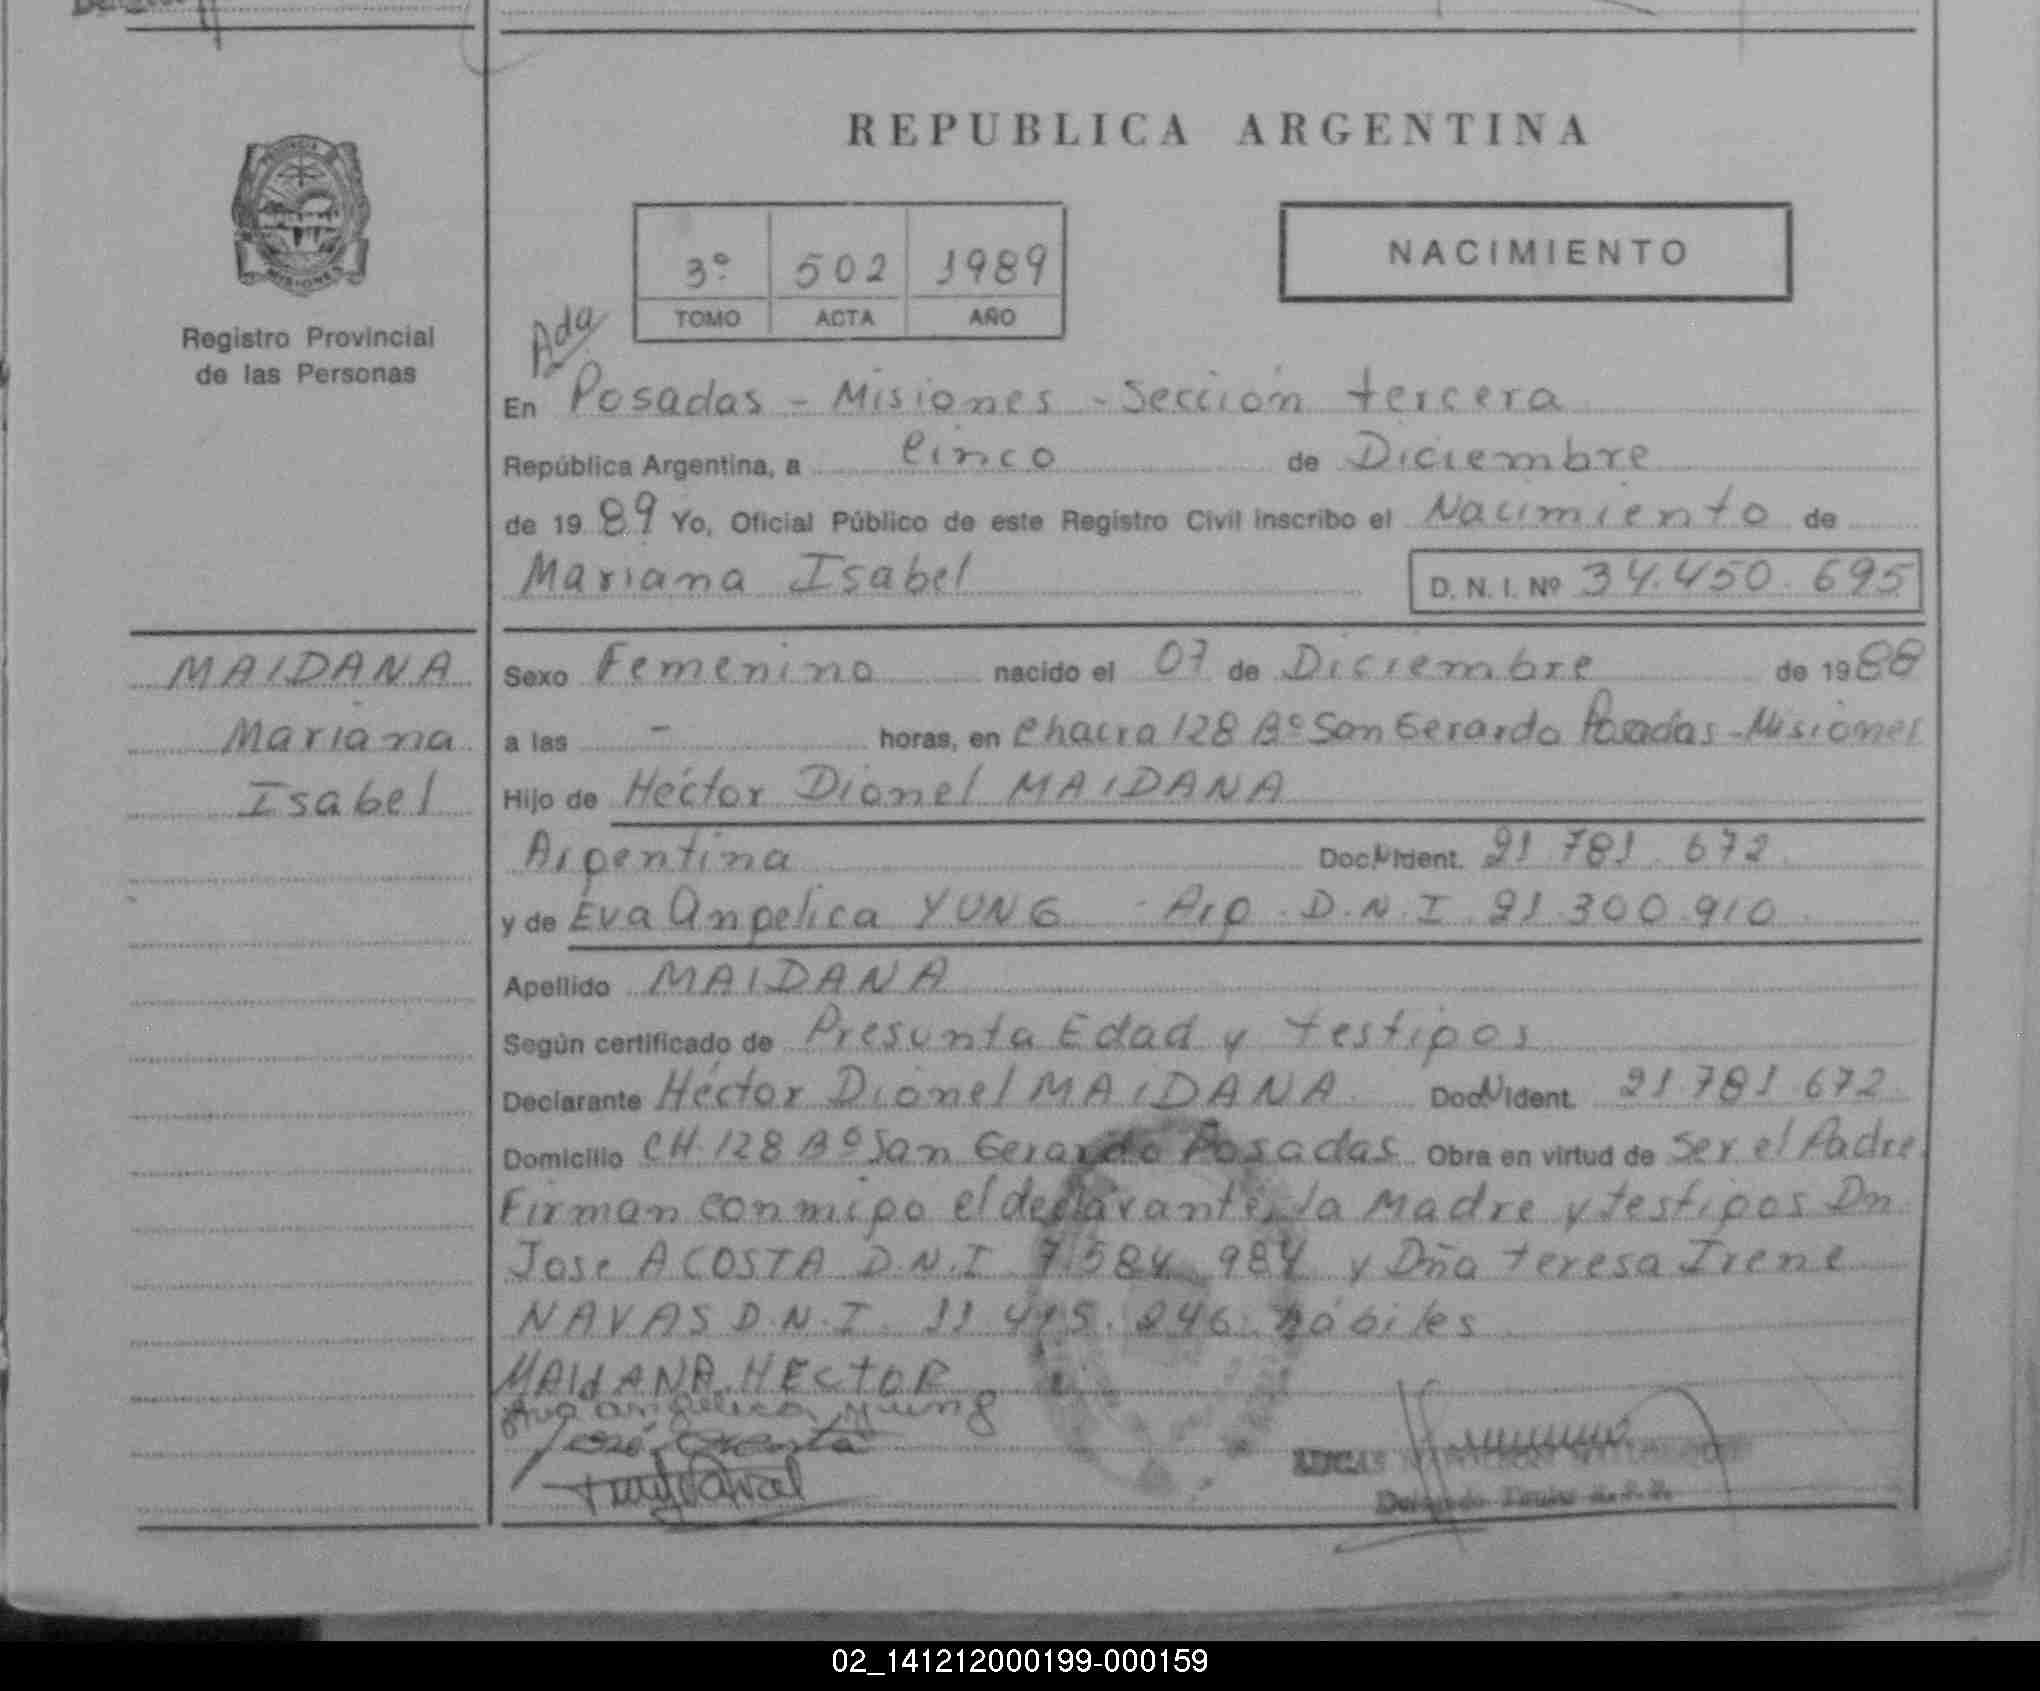 REPUBLICA ARGENTINA
NACIMIENTO
3º 502 1989
TOMO ACTA AÑO
PROVINCIA
MISIONES
Registro Provincial
de las Personas
Ada
En Posadas - Misiones - Sección tercera
República Argentina, a Cinco de Diciembre
de 1989 Yo, Oficial Público de este Registro Civil inscribo el Nacimiento de
Mariana Isabel D. N. I. Nº 34.450.695
MAIDANA
Mariana
Isabel
Sexo Femenino nacido el 07 de Diciembre de 1988
a las - horas, en Chacra 128 Bº San Gerardo Posadas - Misiones
Hijo de Héctor Dionel MAIDANA
Argentina Doc. N Ident. 21.781.672
y de Eva Angelica YUNG - Arg. D.N.I 21.300.910
Apellido MAIDANA
Según certificado de Presunta Edad y testigos
Declarante Héctor Dionel MAIDANA Doc N Ident. 21 781 672
Domicilio CH. 128 Bº San Gerardo Posadas Obra en virtud de Ser el Padre
Firman conmigo el declarante, la Madre y testigos Dn
Jose ACOSTA D.N.I 7.584.984 y Dña teresa Irene
NAVAS D.N.I. 11.415.246. hábiles
MAIdANA HECtOR
Eva angelica yung
José Acosta
02_141212000199-000159